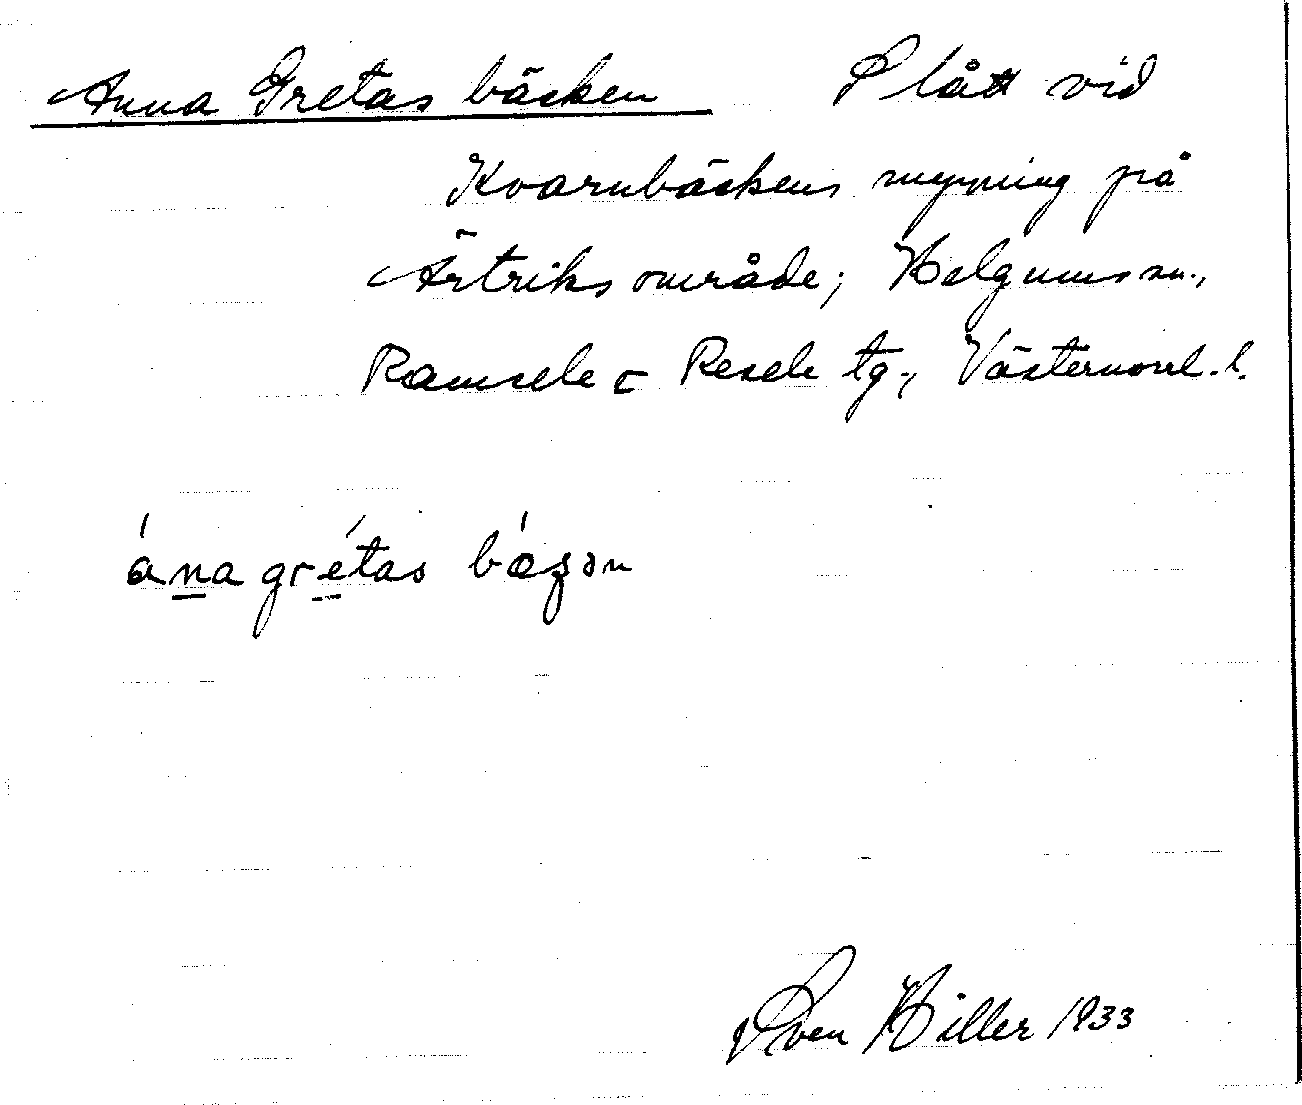 Anna Gretas bäcken Slått vid
Kvarnbäckens mynning på
Ärtriks område; Helgums sn.,
Ramsele o Resele tg., Västernorrl. l.
ána grétas bǽʒən
Sven Hiller 1933